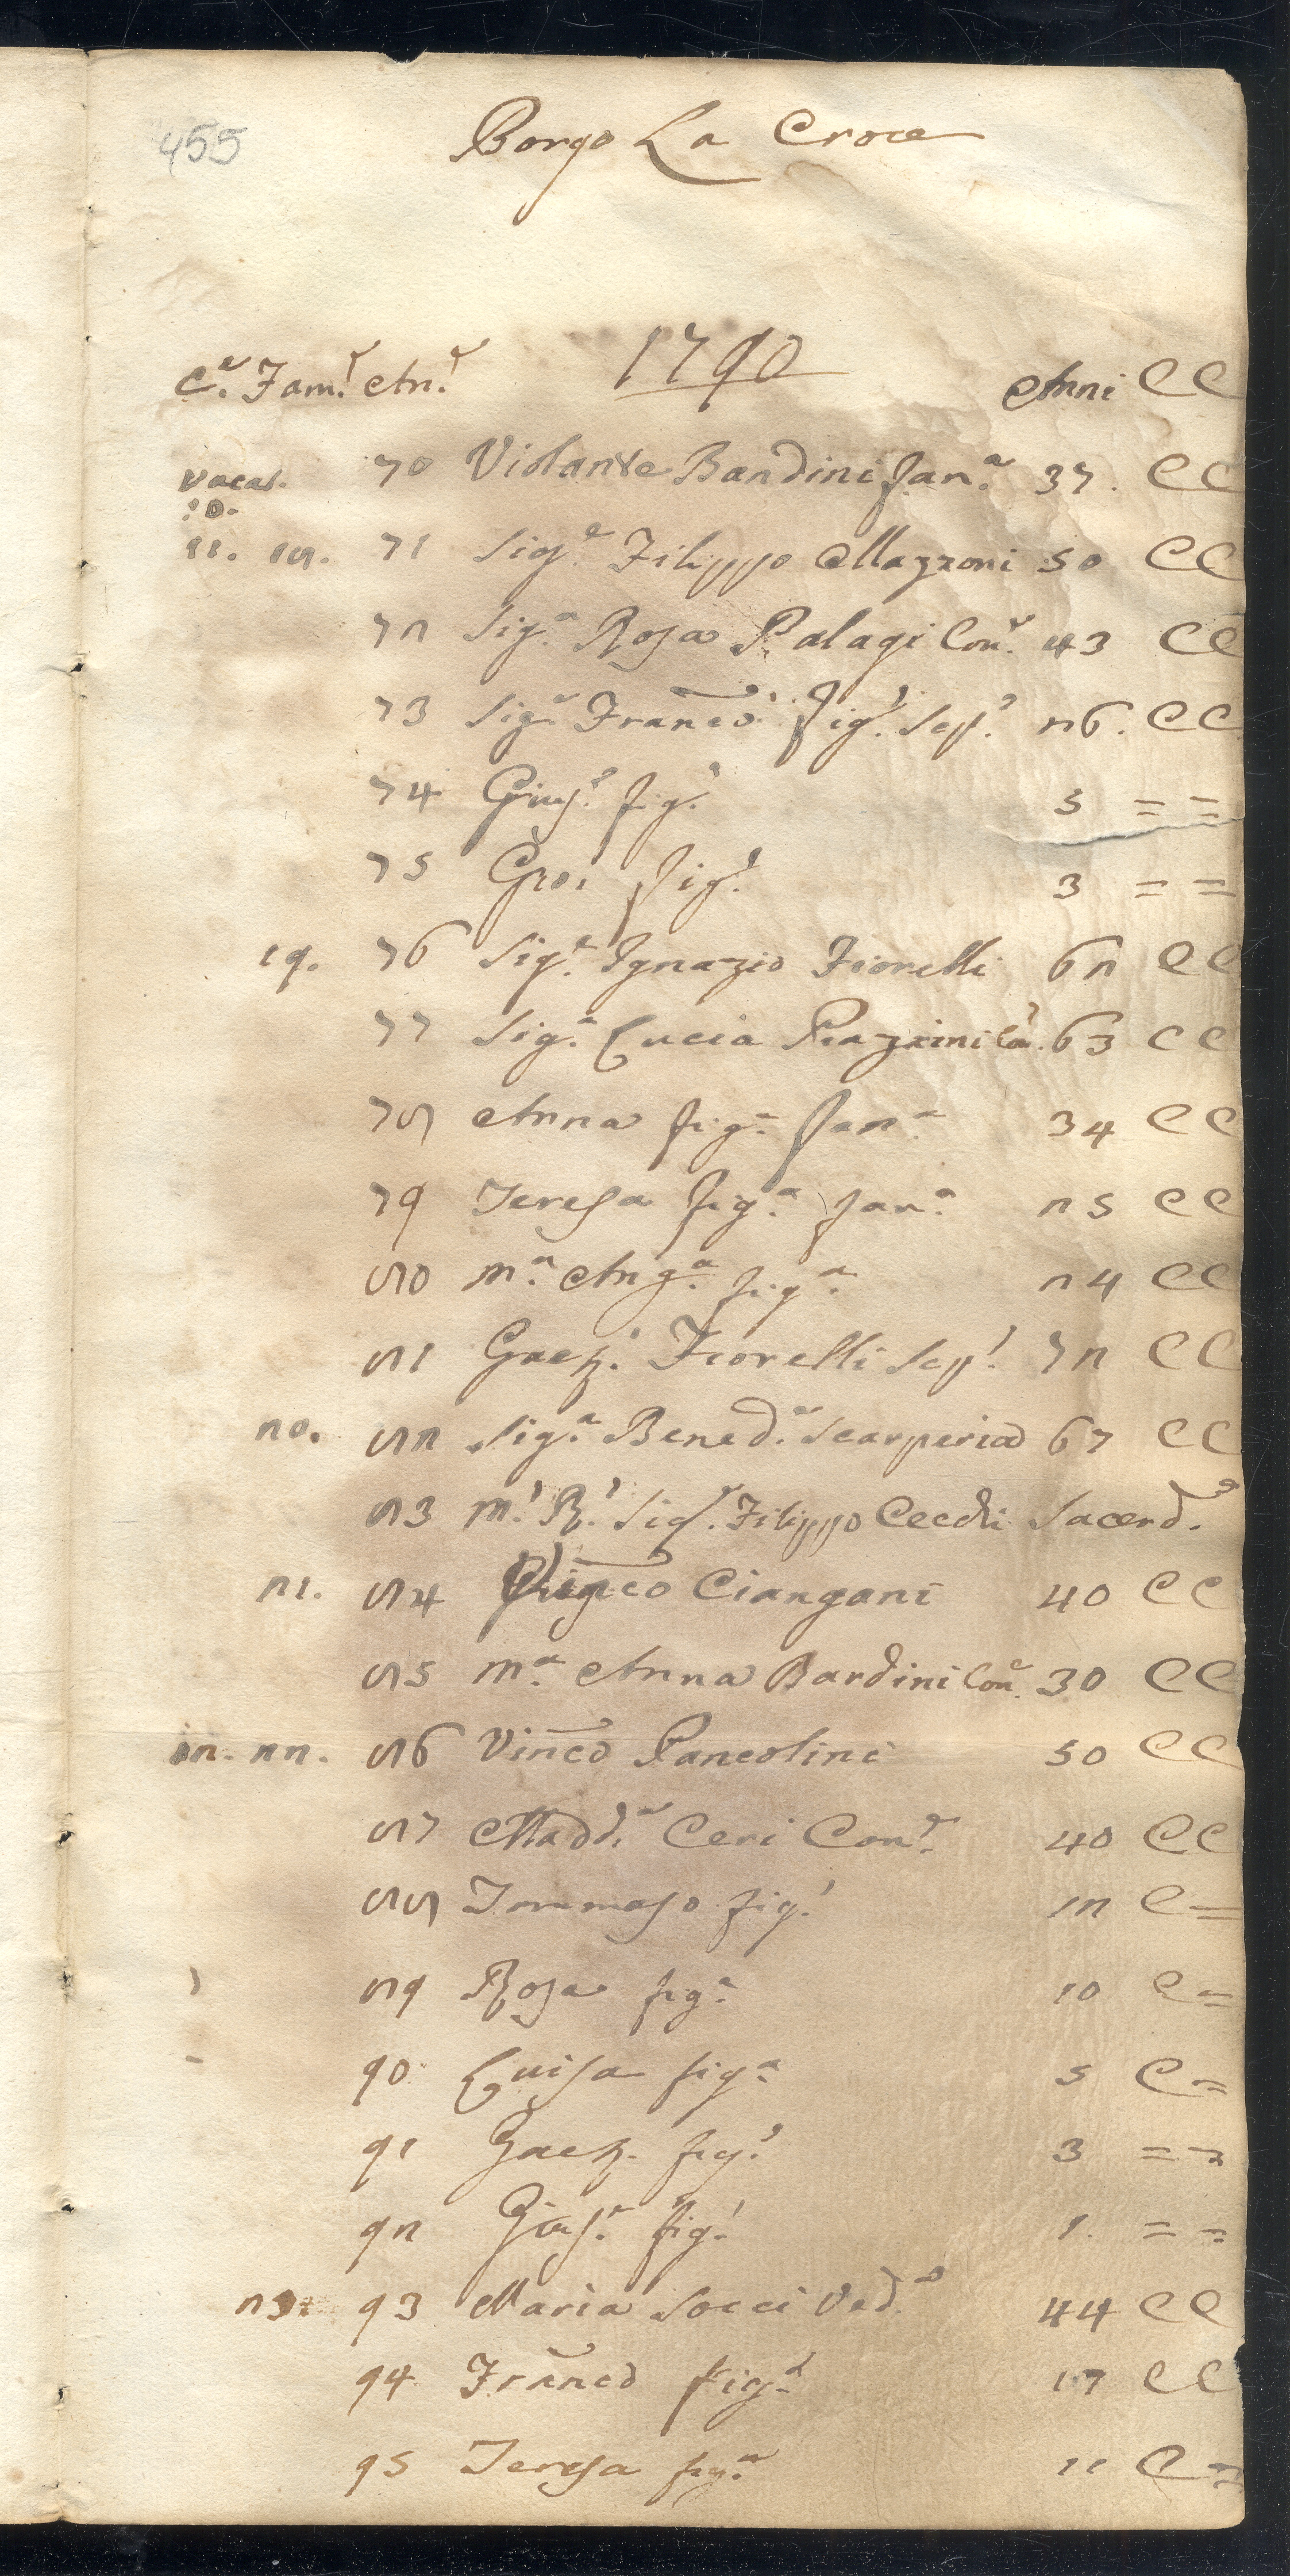 455
Borgo La Croce
1790
C.e Fam.e An.e Anni C C
Vacat. 70 Violante Bandini fan.a 37. C C
10.
11. 18. 71 Sig.r Filippo Mazzoni 50 C C
72 Sig.a Rosa Palagi Con.e 43 C C
73 Sig.r Franco fig.o Sep.o 26. C C
74 Gius.e fig.o 5 = =
75 Gio: fig.o 3 = =
19. 76 Sig.r Ignazio Fiorelli 62 C C
77 Sig.a Lucia Piazzini Con. 63 C C
78 Anna fig.a fan.a 34 C C
79 Teresa fig.a fan.a 25 C C
80 M.a Ang.a fig.a 24 C C
81 Gaet.o Fiorelli Sep.o 72 C C
20. 82 Sig.a Bened.a Scarperia 67 C C
83 M.o R.o Sig.r Filippo Cecchi Sacerd.e
21. 84 Ciangani 40 C C
85 M.a Anna Bardini Con.e 30 C C
12. 22. 86 Vinco Pancolini 50 C C
87 Madd.a Ceri Con.e 40 C C
88 Tommaso fig.o 12 C =
89 Rosa fig.a 10 C =
90 Luisa fig.a 5 C =
91 Gaet. fig.o 3 = =
92 Gius.e fig.o 1. = =
23. 93 Maria Socci Ved.a 44 C C
94 Franco fig.o 17 C C
95 Teresa fig.a 11 C =